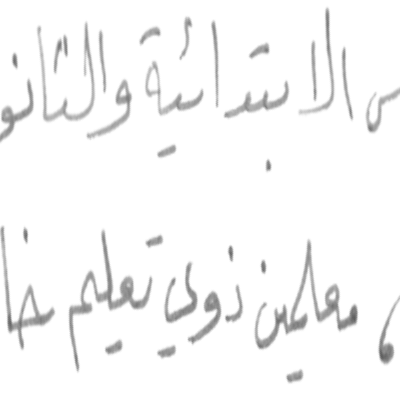 الابتدائية والثانو
، معلمين ذوي تعليم خا